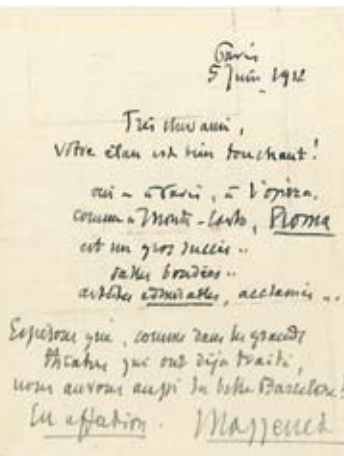 Paris
5 Juin 1912
Très cher ami,
Votre élan est bien touchant!
oui – à Paris, à l'opéra,
comme à Monte-Carlo, Roma
est un gros succès..
salles bondées..
artistes admirables, acclamés...
Espérons que, comme dans les grands
théâtres qui ont déjà traité,
nous aurons aussi la belle Barcelone!
En affection. Massenet